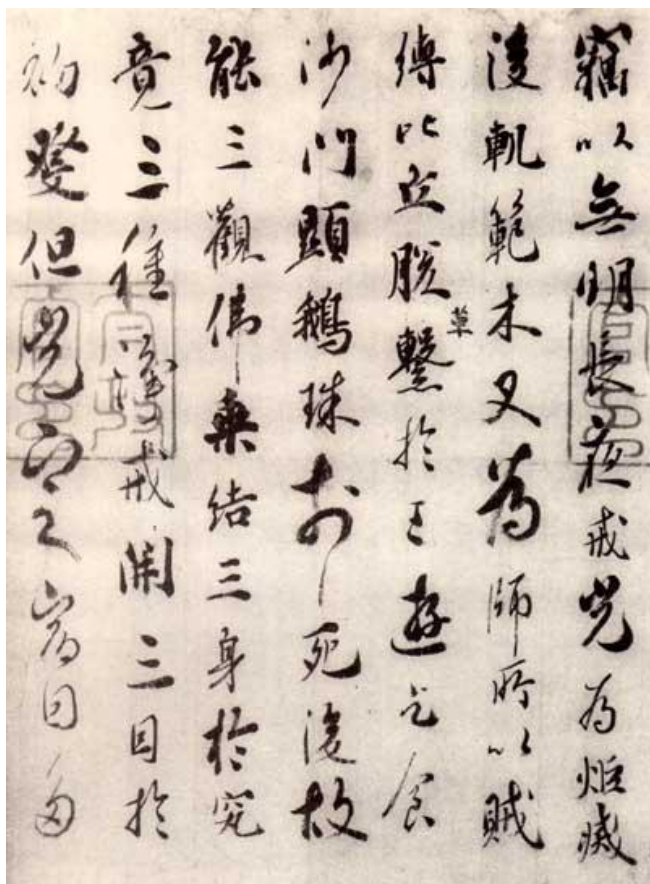 竊以無明長夜戒光為炬滅
後軌範木叉為師所以賊
縛比丘脱草繫於王遊乞食
沙門顯鵝珠於死後故
能三觀佛乘結三身於究
竟三種淨戒開三因於
初發但光定宿因多